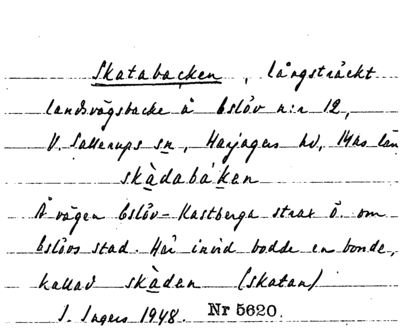 Skatabacken, långsträckt
landsvägsbacke å Eslöv n:r 12,
V. Sallerups sn, Harjagers hd, Mas län
skàdabáken
Å vägen Eslöv-Kastberga strax Ö. om
Eslövs stad. Här invid bodde en bonde,
kallad skàden (skatan)
I. Ingers 1948. Nr 5620.